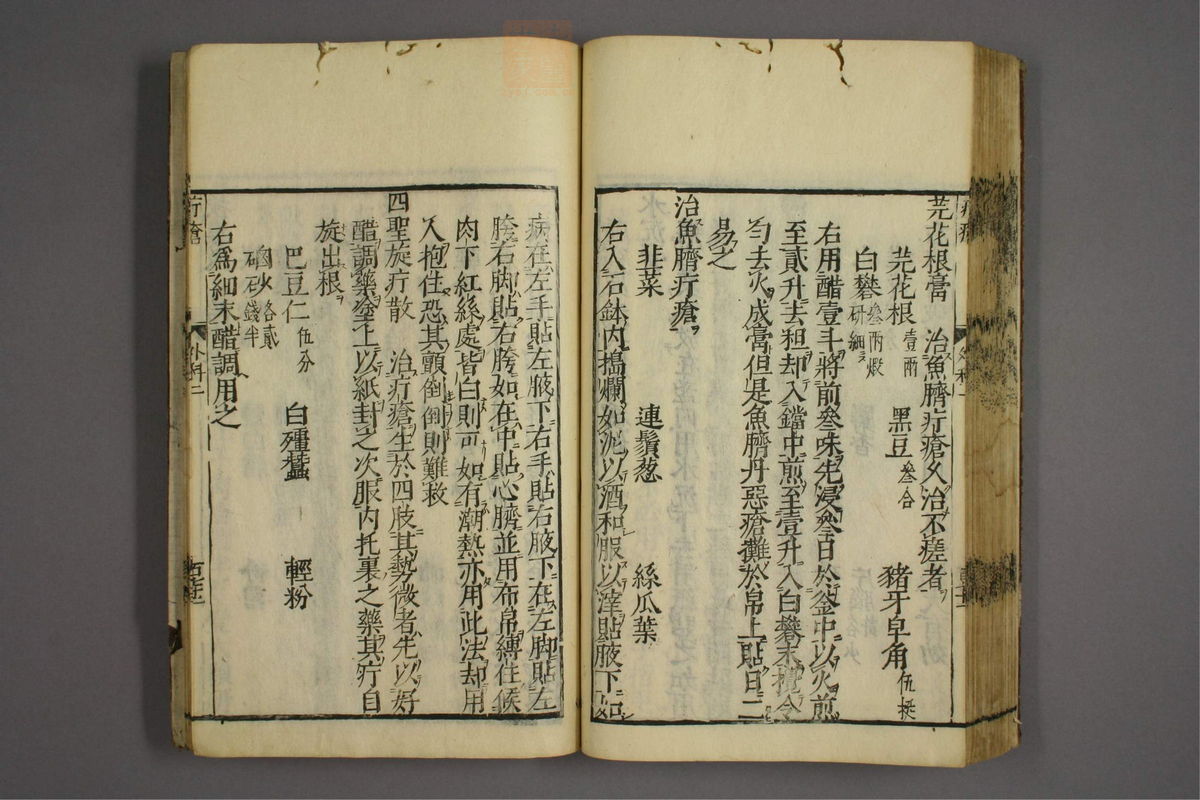 芫花根膏　治魚臍疔瘡久治不瘥者
芫花根壹兩　黑豆叄合　豬牙皁角伍挺
白礬叄兩煅研細
右用醋壹斗將前叄味先浸叄日於釜中以火煎
至貳升去粗却入鐺中煎至壹升入白礬末攪令
勻去火成膏但是魚臍丹惡瘡攤於帛上貼日二
易之
治魚臍疔瘡
韮菜　連鬚葱　絲瓜葉
右入石鉢內搗爛如泥以酒和服以滓貼腋下如
病在左手貼左腋下右手貼右腋下在左脚貼左
胯右脚貼右胯如在中貼心臍並用布帛縛住候
肉下紅絲處皆白則可如有潮熱亦用此法却用
人抱住恐其顫倒倒則難救
四聖旋疔散　治疔瘡生於四肢其勢微者先以好
醋調藥塗上以紙封之次服內托裏之藥其疔自
旋出根
巴豆仁伍分　白殭蠶　輕粉
硇砂各貳錢半
右為細末醋調用之
疔瘡　外科二